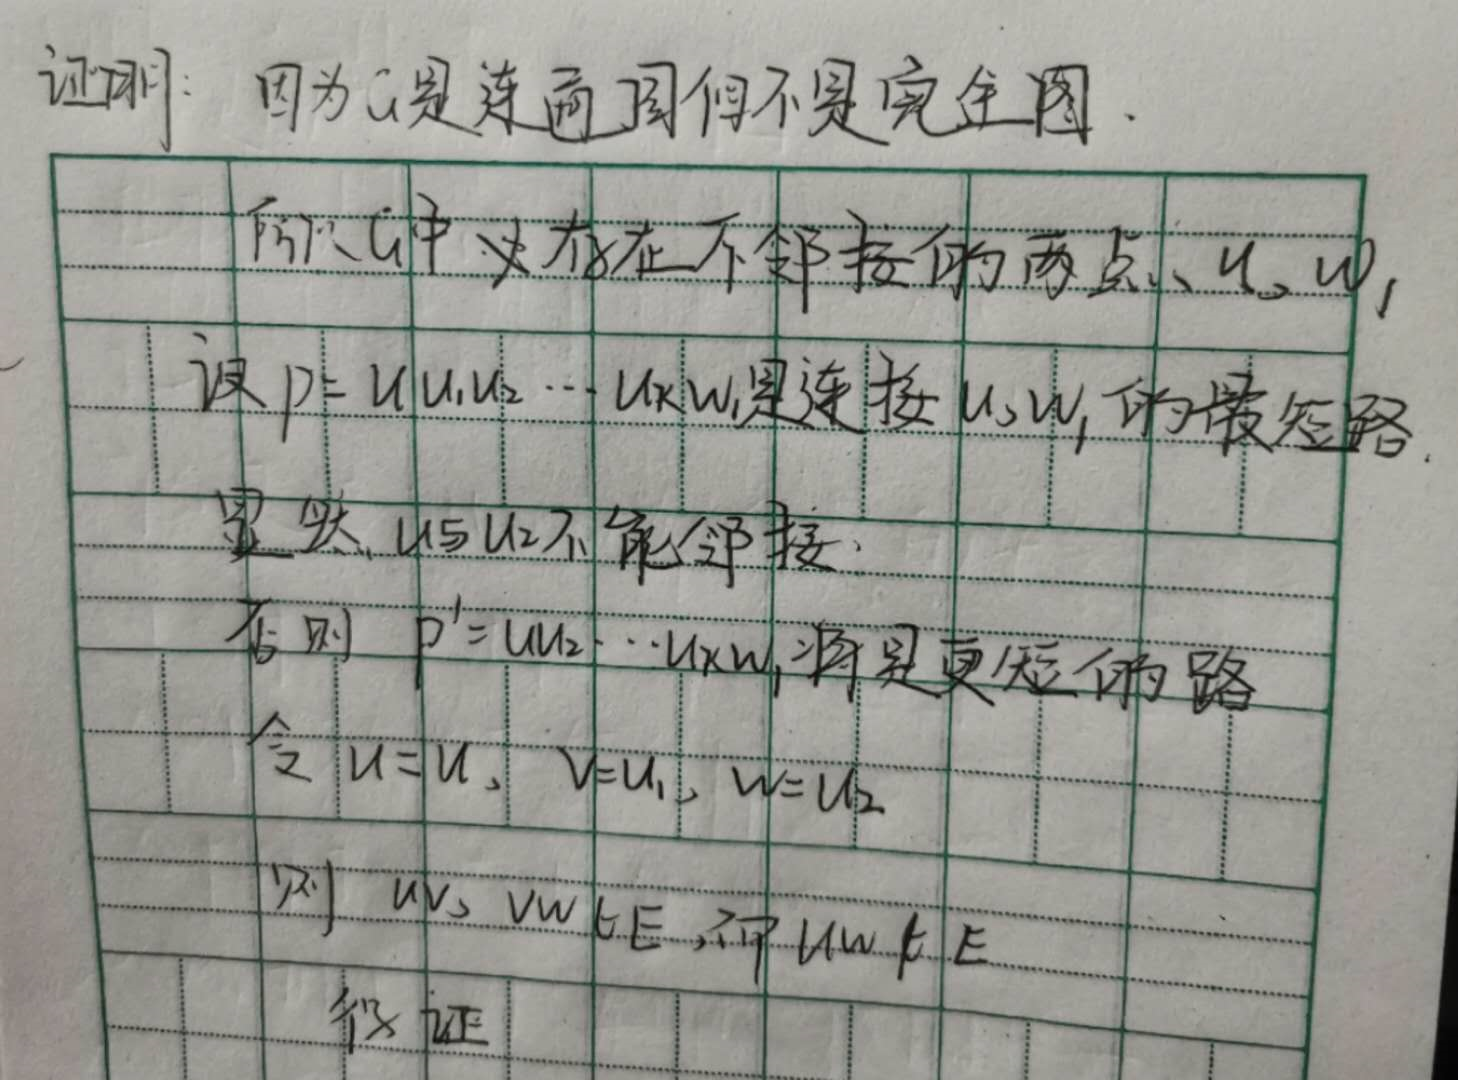 证明: 因为G是连通图但不是完全图.
所以G中必存在不邻接的两点、u、w₁
设P=u u₁u₂…uₖw₁是连接u、w₁的最短路.
显然、u与u₂不能邻接.
否则 p'=uu₂…uₖw₁将是更短的路
令 u=u、 v=u₁、w=u₂
则 uv、vw∈E,而uw∉E
得证